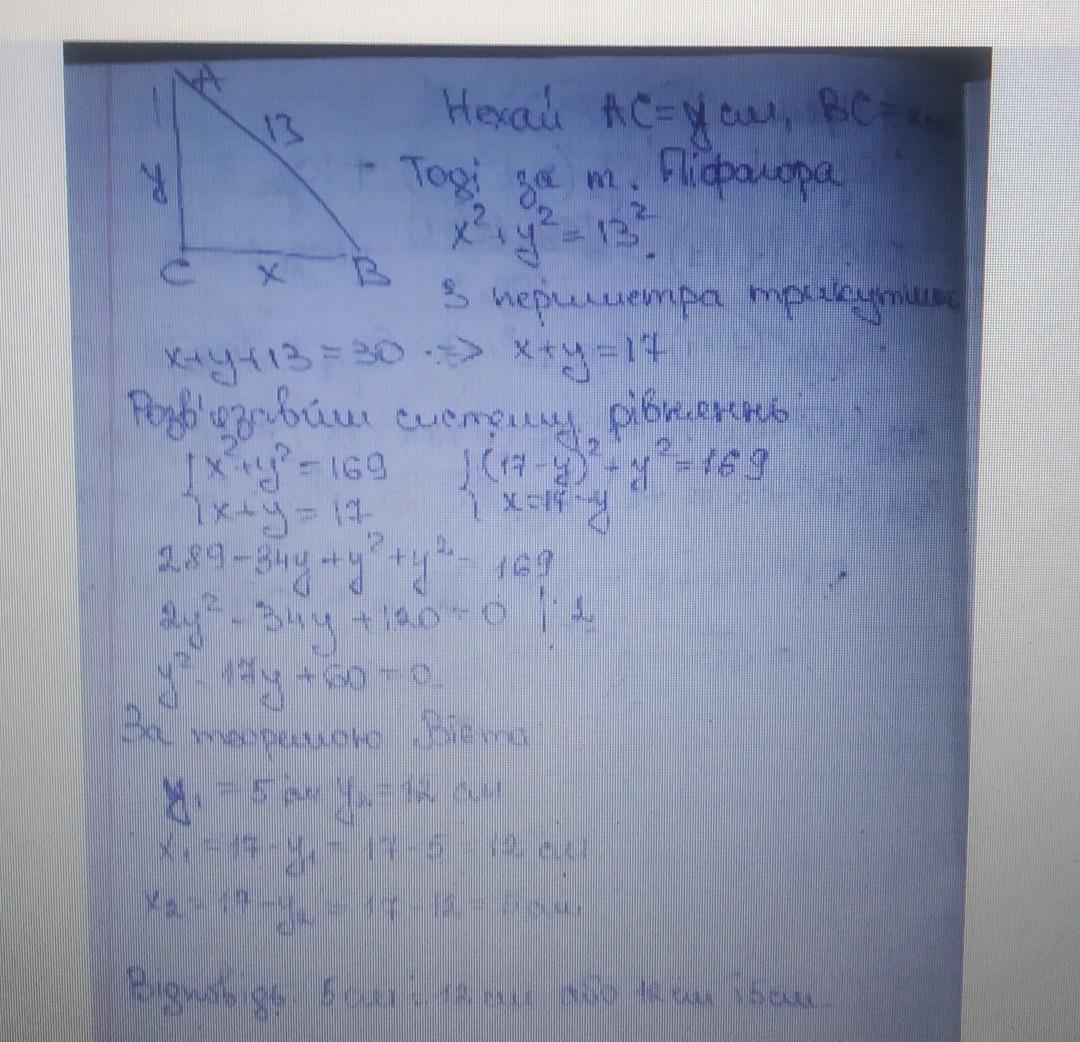 A
13
Нехай AC=y см, BC=x
y
Тоді за т. Піфагора
x²+y²=13².
C x B
З периметра трикутника
x+y+13=30 => x+y=17
Розв'язавши систему рівнень
{x²+y²=169 {(17-y)²+y²=169
{x+y=17 { x=17-y
289-34y+y²+y²=169
2y²-34y+120=0 |:2
y²-17y+60=0
За теоремою Вієта
y₁=5 см y₂=12 см
x₁=17-y₁=17-5=12 см
x₂=17-y₂=17-12=5 см
Відповідь: 5 см і 12 см або 12 см і 5 см.